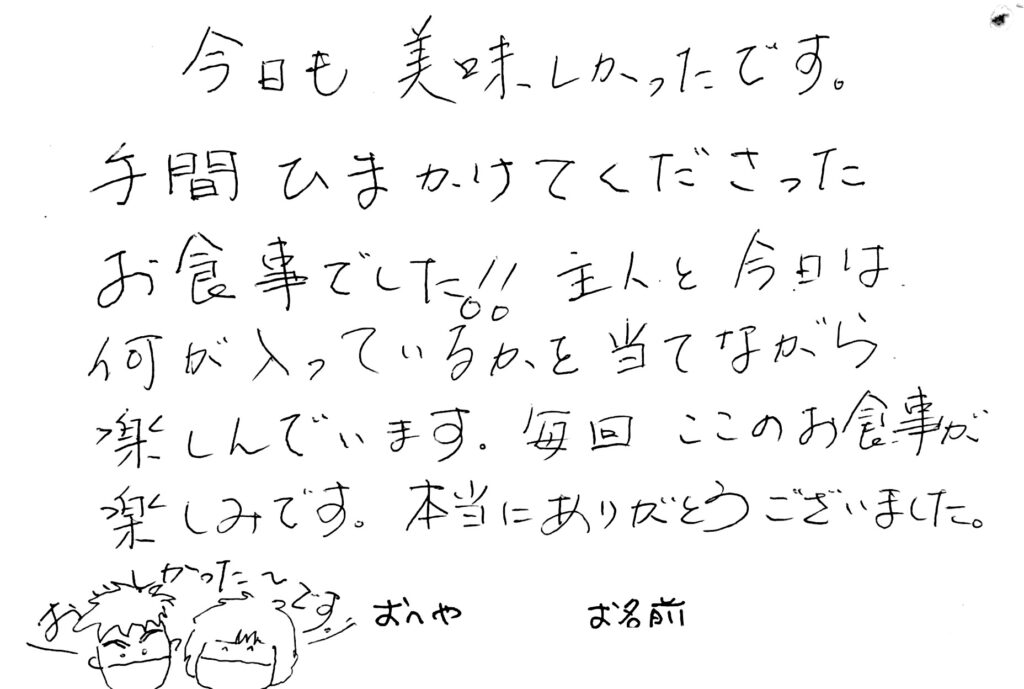 今日も 美味しかったです。
手間 ひまかけてくださった
お食事でした!! 主人と 今日は
何が入っているかを当てながら
楽しんでいます。毎回 ここのお食事が
楽しみです。本当にありがとうございました。
しかったです
おへや お名前